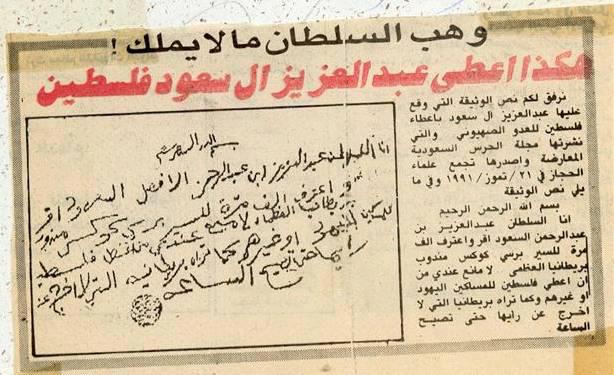 وهب السلطان مالايملك !
هكذا اعطى عبدالعزيز ال سعود فلسطين
نرفق لكم نص الوثيقة التي وقع
عليها عبدالعزيز ال سعود باعطاء
فلسطين للعدو الصهيوني والتي
نشرتها مجلة الحرس السعودية
المعارضة واصدرها تجمع علماء
الحجاز في ٢١/تموز/١٩٩١ وفي ما
يلي نص الوثيقة
بسم الله الرحمن الرحيم
انا السلطان عبدالعزيز بن
عبدالرحمن السعود اقر واعترف الف
مرة للسير برسي كوكس مندوب
بريطانيا العظمى لا مانع عندي من
ان اعطي فلسطين للمساكين اليهود
او غيرهم وكما تراه بريطانيا التي لا
اخرج عن رايها حتى تصيح
الساعة
انا السلطان عبدالعزيز ابن عبدالرحمن الفيصل السعود اقر
واعترف الف مرة للسير برسي كوكس مندوب
بريطانيا العظمى لا مانع عندي
او غيرهم كما تراه بريطانيا التي لا اخرج عن
رايها حتى تصيح الساعة